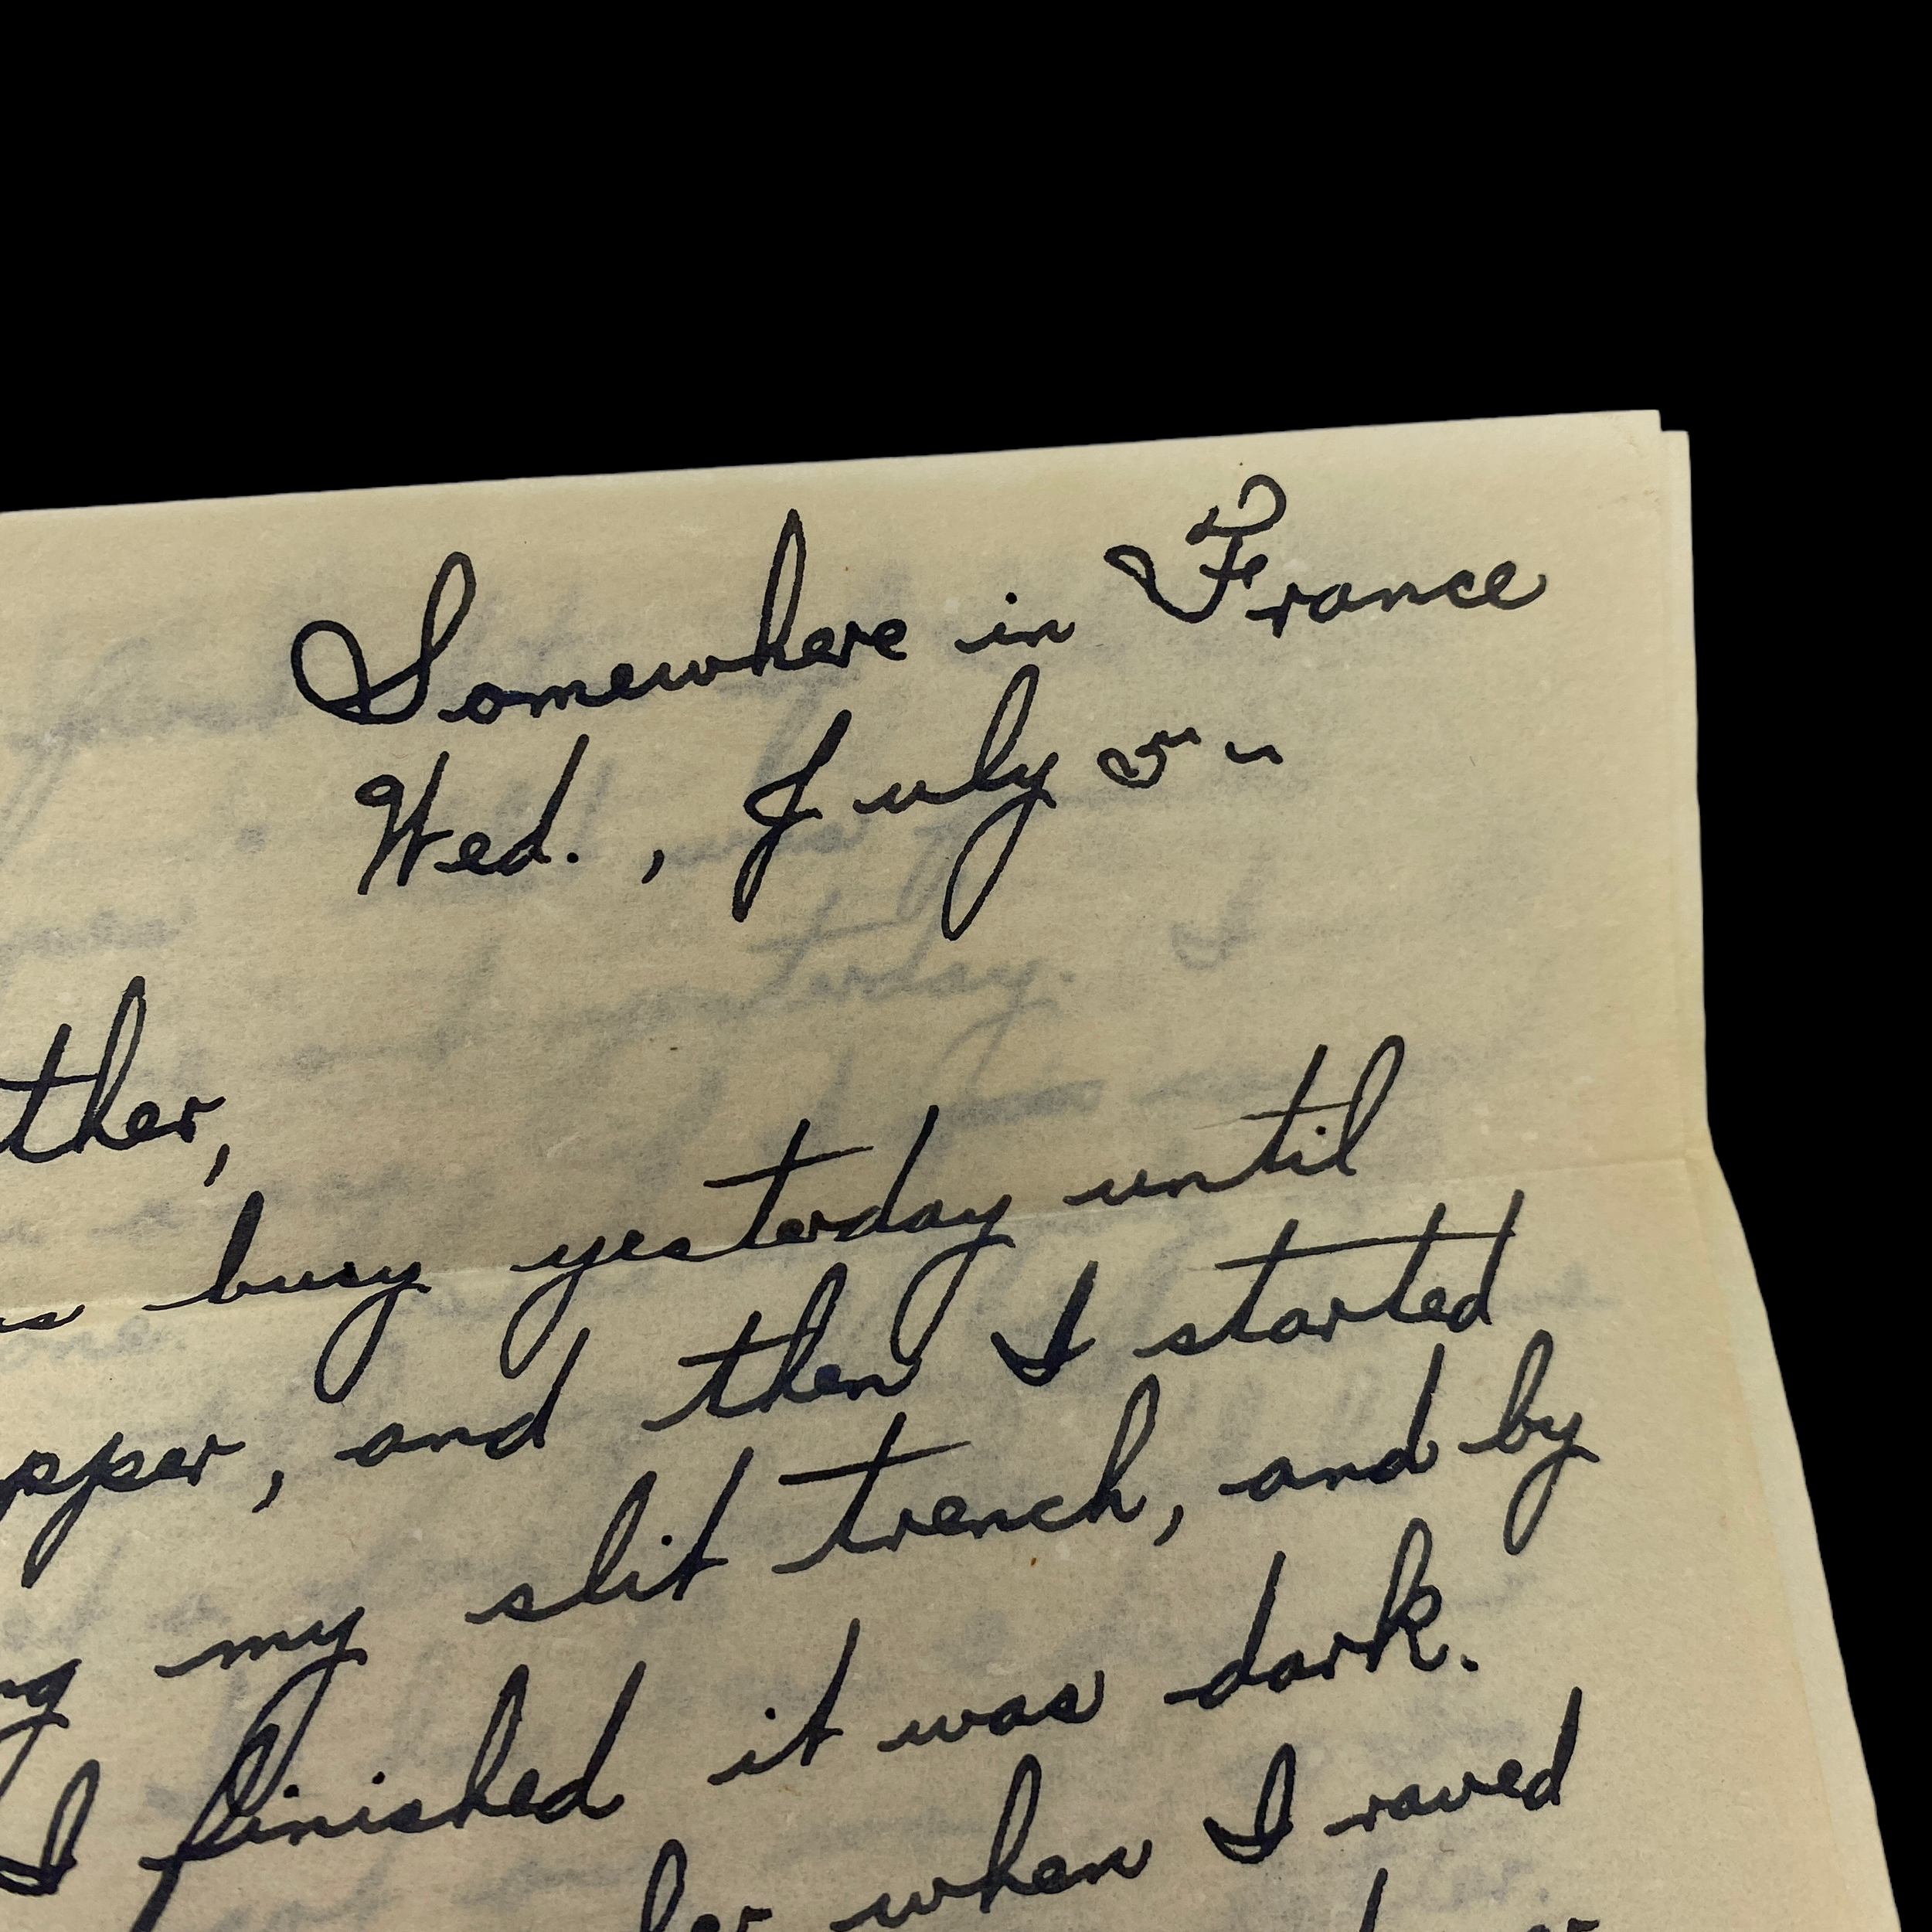 Somewhere in France
Wed., July 5 -
ther,
s busy yesterday until
pper, and then I started
ng my slit trench, and by
I finished it was dark.
when I raved